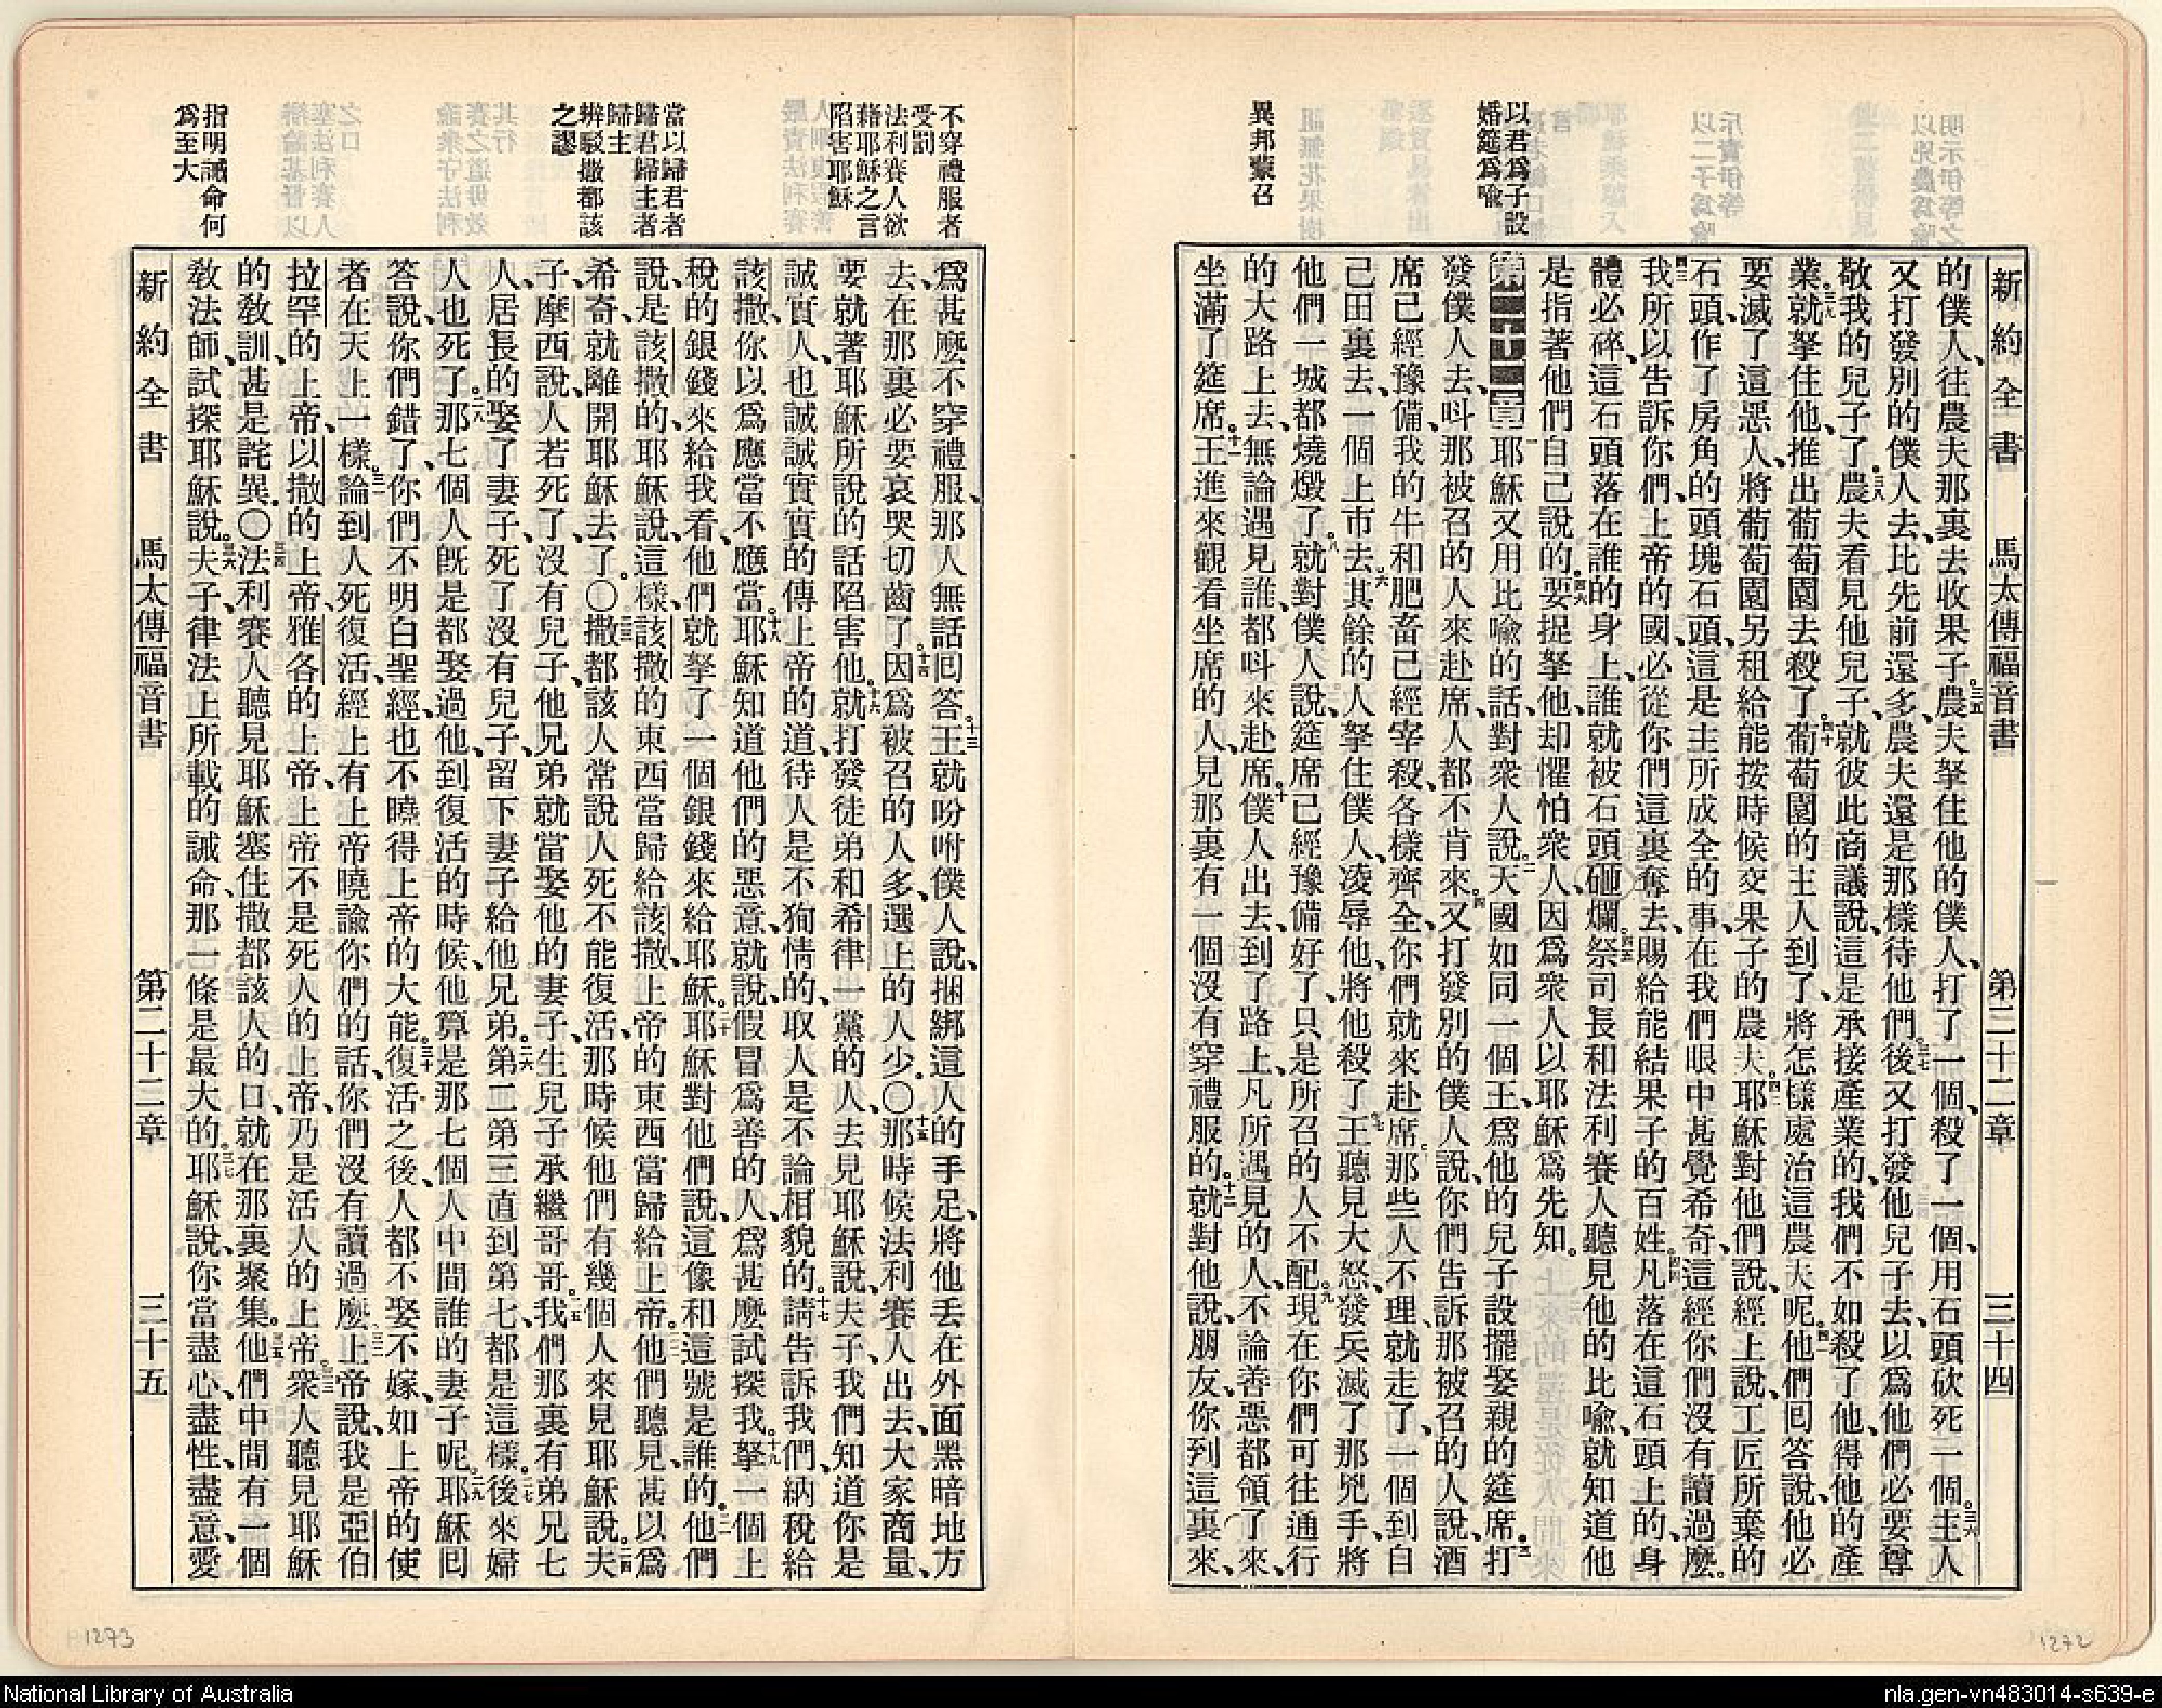 以君爲子設
婚筵爲喩
異邦蒙召
新約全書　馬太傳福音書　第二十二章　三十四
的僕人、往農夫那裏去收果子。三五農夫拏住他的僕人、打了一個、殺了一個、用石頭砍死一個。三六主人
又打發別的僕人去、比先前還多、農夫還是那樣待他們。三七後又打發他兒子去、以爲他們必要尊
敬我的兒子了。三八農夫看見他兒子、就彼此商議說、這是承接產業的、我們不如殺了他、得他的產
業。三九就拏住他、推出葡萄園去殺了。四十葡萄園的主人到了、將怎樣處治這農夫呢。四一他們回答說、他必
要滅了這惡人、將葡萄園另租給能按時候交果子的農夫。四二耶穌對他們說、經上說、工匠所棄的
石頭、作了房角的頭塊石頭、這是主所成全的事、在我們眼中甚覺希奇、這經你們沒有讀過麼。
四三我所以告訴你們、上帝的國、必從你們這裏奪去、賜給能結果子的百姓。四四凡落在這石頭上的、身
體必碎、這石頭落在誰的身上、誰就被石頭砸爛。四五祭司長和法利賽人聽見他的比喩、就知道他
是指著他們自己說的。四六要捉拏他、却懼怕衆人、因爲衆人以耶穌爲先知。
第二十二章一耶穌又用比喩的話、對衆人說。二天國如同一個王、爲他的兒子設擺娶親的筵席。三打
發僕人去、呌那被召的人來赴席、人都不肯來。四又打發別的僕人說、你們告訴那被召的人說、酒
席已經豫備、我的牛和肥畜已經宰殺、各樣齊全、你們就來赴席。五那些人不理、就走了、一個到自
己田裏去、一個上市去。六其餘的人拏住僕人、凌辱他、將他殺了。七王聽見大怒、發兵滅了那兇手、將
他們一城都燒燬了。八就對僕人說、筵席已經豫備好了、只是所召的人不配。九現在你們可往通行
的大路上去、無論遇見誰、都呌來赴席。十僕人出去、到了路上、凡所遇見的人、不論善惡都領了來、
坐滿了筵席。十一王進來觀看坐席的人、見那裏有一個沒有穿禮服的。十二就對他說、朋友、你到這裏來、
不穿禮服者
受罰
法利賽人欲
藉耶穌之言
陷害耶穌
當以歸君者
歸君歸主者
歸主
辨駁撒都該
之謬
指明誡命何
爲至大
爲甚麼不穿禮服、那人無話回答。十三王就吩咐僕人說、捆綁這人的手足、將他丟在外面黑暗地方
去、在那裏必要哀哭切齒了。十四因爲被召的人多、選上的人少。〇十五那時候法利賽人出去、大家商量、
要就著耶穌所說的話陷害他。十六就打發徒弟和希律一黨的人、去見耶穌說、夫子、我們知道你是
誠實人、也誠誠實實的傳上帝的道、待人是不狥情的、取人是不論相貌的。十七請告訴我們、納稅給
該撒、你以爲應當不應當。十八耶穌知道他們的惡意、就說、假冒爲善的人、爲甚麼試探我。十九拏一個上
稅的銀錢來給我看、他們就拏了一個銀錢來給耶穌。二十耶穌對他們說、這像和這號是誰的。二一他們
說、是該撒的、耶穌說、這樣、該撒的東西當歸給該撒、上帝的東西當歸給上帝。二二他們聽見、甚以爲
希奇、就離開耶穌去了。〇二三撒都該人常說人死不能復活、那時候他們有幾個人來見耶穌說。二四夫
子、摩西說、人若死了、沒有兒子、他兄弟就當娶他的妻子、生兒子承繼哥哥。二五我們那裏有弟兄七
人、居長的娶了妻子、死了沒有兒子、留下妻子給他兄弟。二六第二第三直到第七、都是這樣。二七後來婦
人也死了。二八那七個人旣是都娶過他、到復活的時候、他算是那七個人中間誰的妻子呢。二九耶穌回
答說、你們錯了、你們不明白聖經、也不曉得上帝的大能。三十復活之後、人都不娶不嫁、如上帝的使
者在天上一樣。三一論到人死復活、經上有上帝曉諭你們的話、你們沒有讀過麼。三二上帝說、我是亞伯
拉罕的上帝、以撒的上帝、雅各的上帝、上帝不是死人的上帝、乃是活人的上帝。三三衆人聽見耶穌
的敎訓、甚是詫異。〇三四法利賽人聽見耶穌塞住撒都該人的口、就在那裏聚集。三五他們中間有一個
敎法師、試探耶穌說。三六夫子、律法上所載的誡命、那一條是最大的。三七耶穌說、你當盡心、盡性、盡意、愛
新約全書　馬太傳福音書　第二十二章　三十五
1273
1272
National Library of Australia
nla.gen-vn483014-s639-e